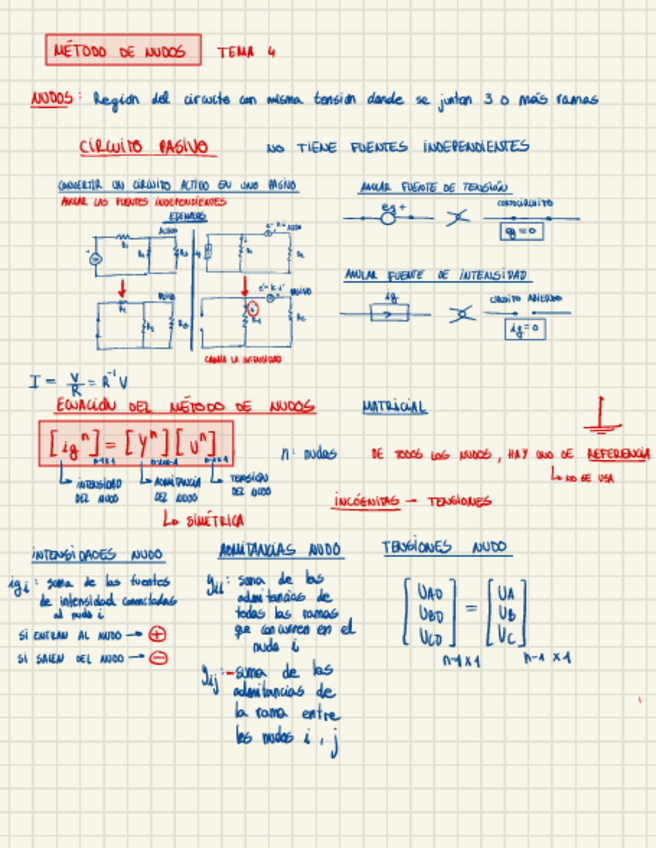 MÉTODO DE NUDOS TEMA 4
NUDOS: Región del circuito con misma tensión donde se juntan 3 o más ramas
CIRCUITO PASIVO NO TIENE FUENTES INDEPENDIENTES
CONVERTIR UN CIRCUITO ACTIVO EN UNO PASIVO
ANULAR LAS FUENTES INDEPENDIENTES
EJEMPLOS
ACTIVO
R1
R2
R3
ACTIVO
PASIVO
R1
R2
R3
PASIVO
CAMBIA LA INTENSIDAD
ANULAR FUENTE DE TENSIÓN
eg +
CORTOCIRCUITO
eg = 0
ANULAR FUENTE DE INTENSIDAD
ig
CIRCUITO ABIERTO
ig = 0
I = V/R = R⁻¹ V
ECUACIÓN DEL MÉTODO DE NUDOS MATRICIAL
[igⁿ] = [Yⁿ] [Uⁿ]
n-1 x 1 n-1 x n-1 n-1 x 1
INTENSIDAD DEL NUDO
ADMITANCIA DEL NUDO
TENSIÓN DEL NUDO
SIMÉTRICA
n: nudos
DE TODOS LOS NUDOS, HAY UNO DE REFERENCIA
NO SE USA
INCÓGNITAS → TENSIONES
INTENSIDADES NUDO
igi: suma de las fuentes
de intensidad conectadas
al nudo i
SI ENTRAN AL NUDO → +
SI SALEN DEL NUDO → −
ADMITANCIAS NUDO
Yii: suma de las
admitancias de
todas las ramas
que concurren en el
nudo i
Yij: -suma de las
admitancias de
la rama entre
los nudos i, j
TENSIONES NUDO
[UAD] = [UA]
[UBD] [UB]
[UCD] [UC]
n-1 x 1 n-1 x 1